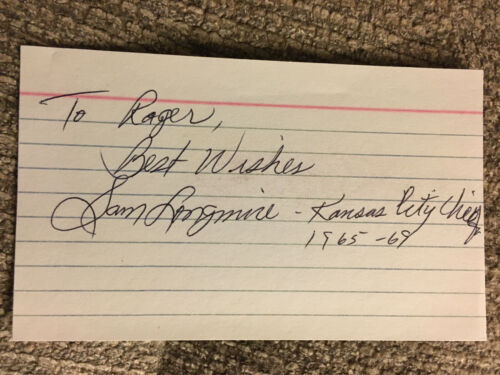 To Roger,
Best Wishes
Sam Longmire - Kansas City Chiefs
1965-69